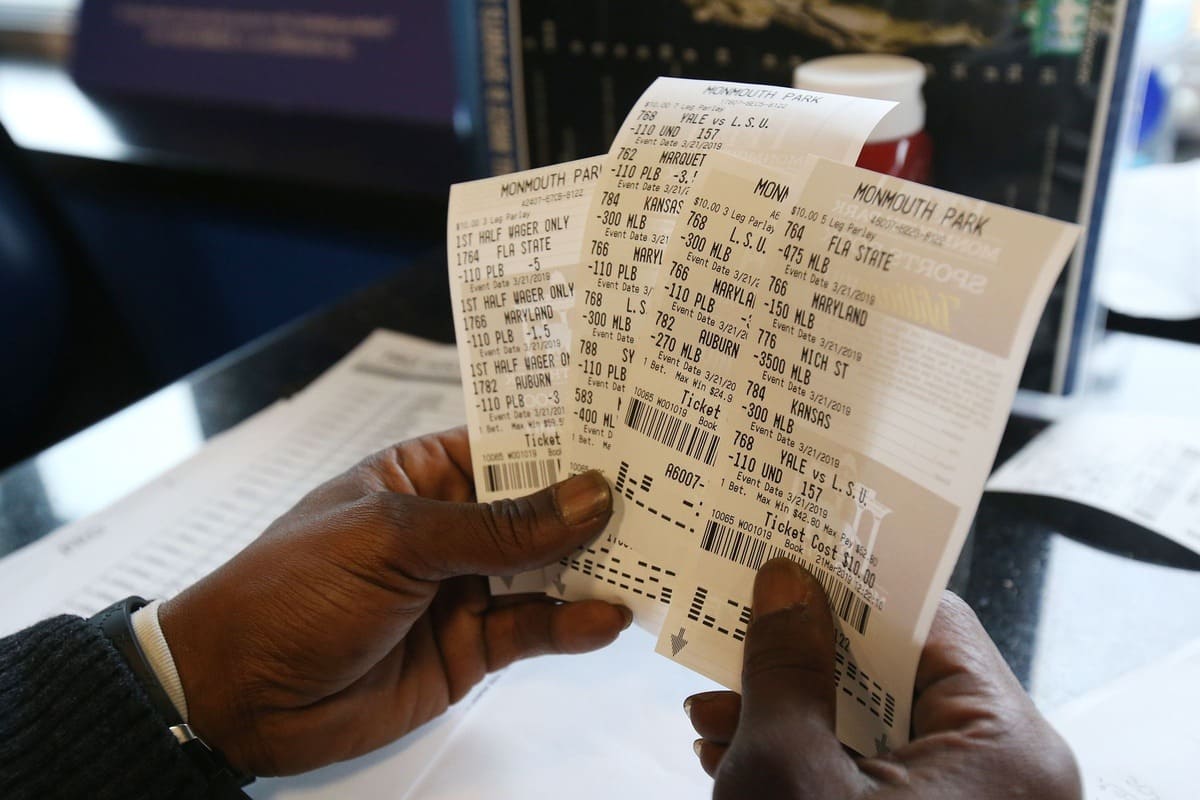 MONMOUTH PAR
$10.00 3 Leg Parlay
1ST HALF WAGER ONLY
1764 FLA STATE
-110 PLB -5
Event Date 3/21/2019
1ST HALF WAGER ONLY
1766 MARYLAND
-110 PLB -1.5
Event Date 3/21/2019
1ST HALF WAGER ON
1782 AUBURN
-110 PLB -3
Event Date 3/21/201
1 Bet. Max Win $59.5
Ticket
10065 W001019 Book
MONMOUTH PARK
$10.00 7 Leg Parlay
768 YALE vs L.S.U.
-110 UND 157
Event Date 3/21/2019
762 MARQUET
-110 PLB -3.
Event Date 3/21/
784 KANSAS
-300 MLB
Event Date 3/21
766 MARYL
-110 PLB
Event Date 3/21
768 L.S
-300 MLB
Event Date 3/2
788 SY
-110 PLB
Event Dat
583
-400 ML
1 Bet.
MONM
$10.00 3 Leg Parlay
768 L.S.U.
-300 MLB
Event Date 3/21/
766 MARYLA
-110 PLB
Event Date 3/21/2
782 AUBURN
-270 MLB
Event Date 3/21/20
1 Bet. Max Win $24.9
Ticket
10065 W001019 Book
A6007-
MONMOUTH PARK
$10.00 5 Leg Parlay
764 FLA STATE
-475 MLB
Event Date 3/21/2019
766 MARYLAND
-150 MLB
Event Date 3/21/2019
776 MICH ST
-3500 MLB
Event Date 3/21/2019
784 KANSAS
-300 MLB
Event Date 3/21/2019
768 YALE vs L.S.U.
-110 UND 157
Event Date 3/21/2019
1 Bet. Max Win $42.80 Max Pay $52.80
Ticket Cost $10.00
10065 W001019 Book 21Mar2019 12:22:10